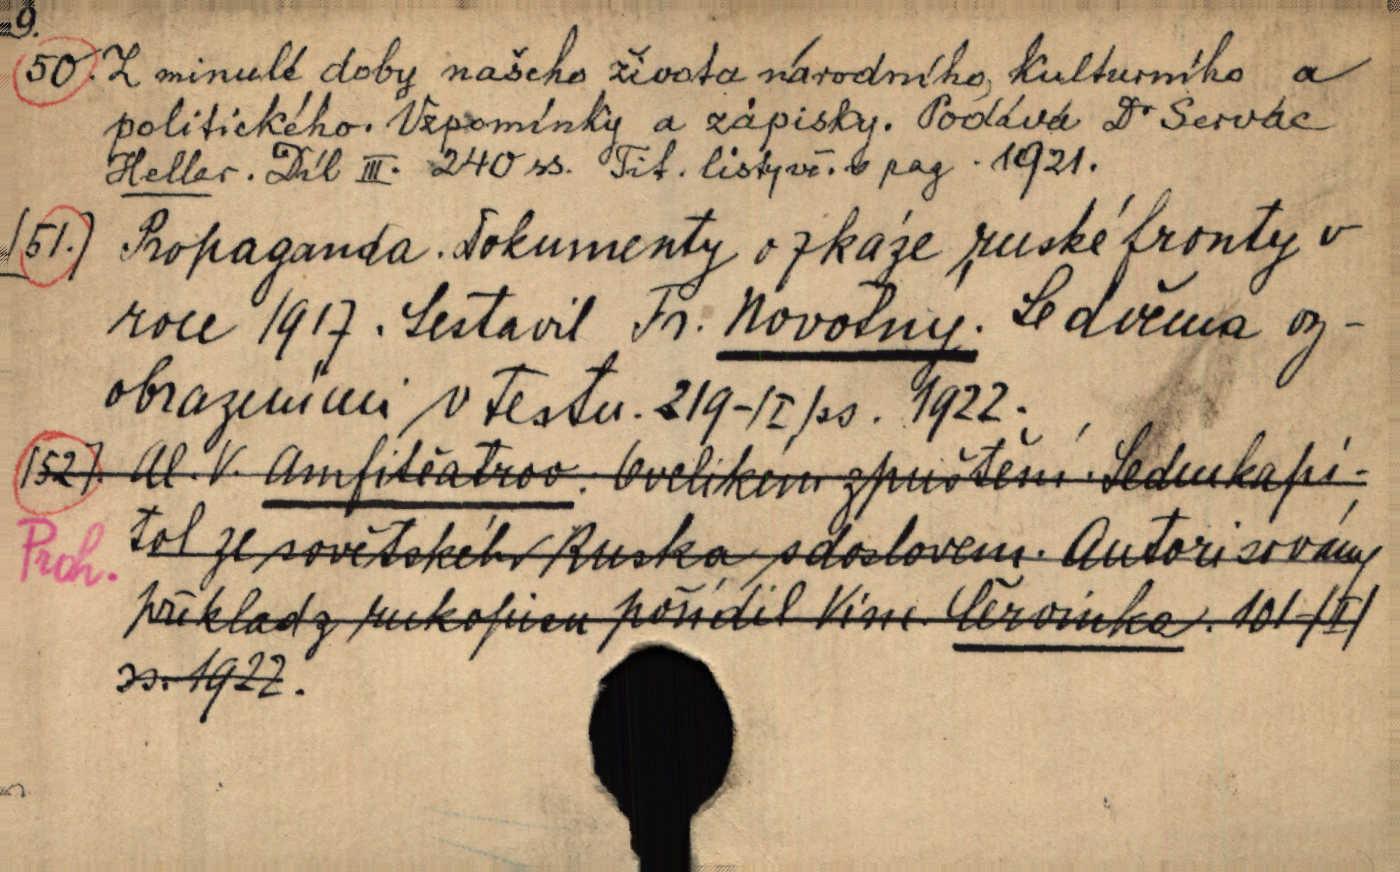 9.
50. Z minulé doby našeho života národního, kulturního a
politického. Vzpomínky a zápisky. Podává Dr Servác
Heller. Díl III. 240 ss. Tit. listy vč. v pag. 1921.
[51.] Propaganda. Dokumenty o zkáze ruské fronty v
roce 1917. Sestavil Fr. Novotný. Se dvěma vy-
obrazeními v textu. 219-/I/ss. 1922.
[52]. Al. V. Amfitěatrov. O velikém zpuštění. Sedm kapi-
tol ze sovětského Ruska s doslovem. Autorisovaný
Proh.
překlad z rukopisu pořídil Vinc. Červinka. 101-/I/
ss. 1922.